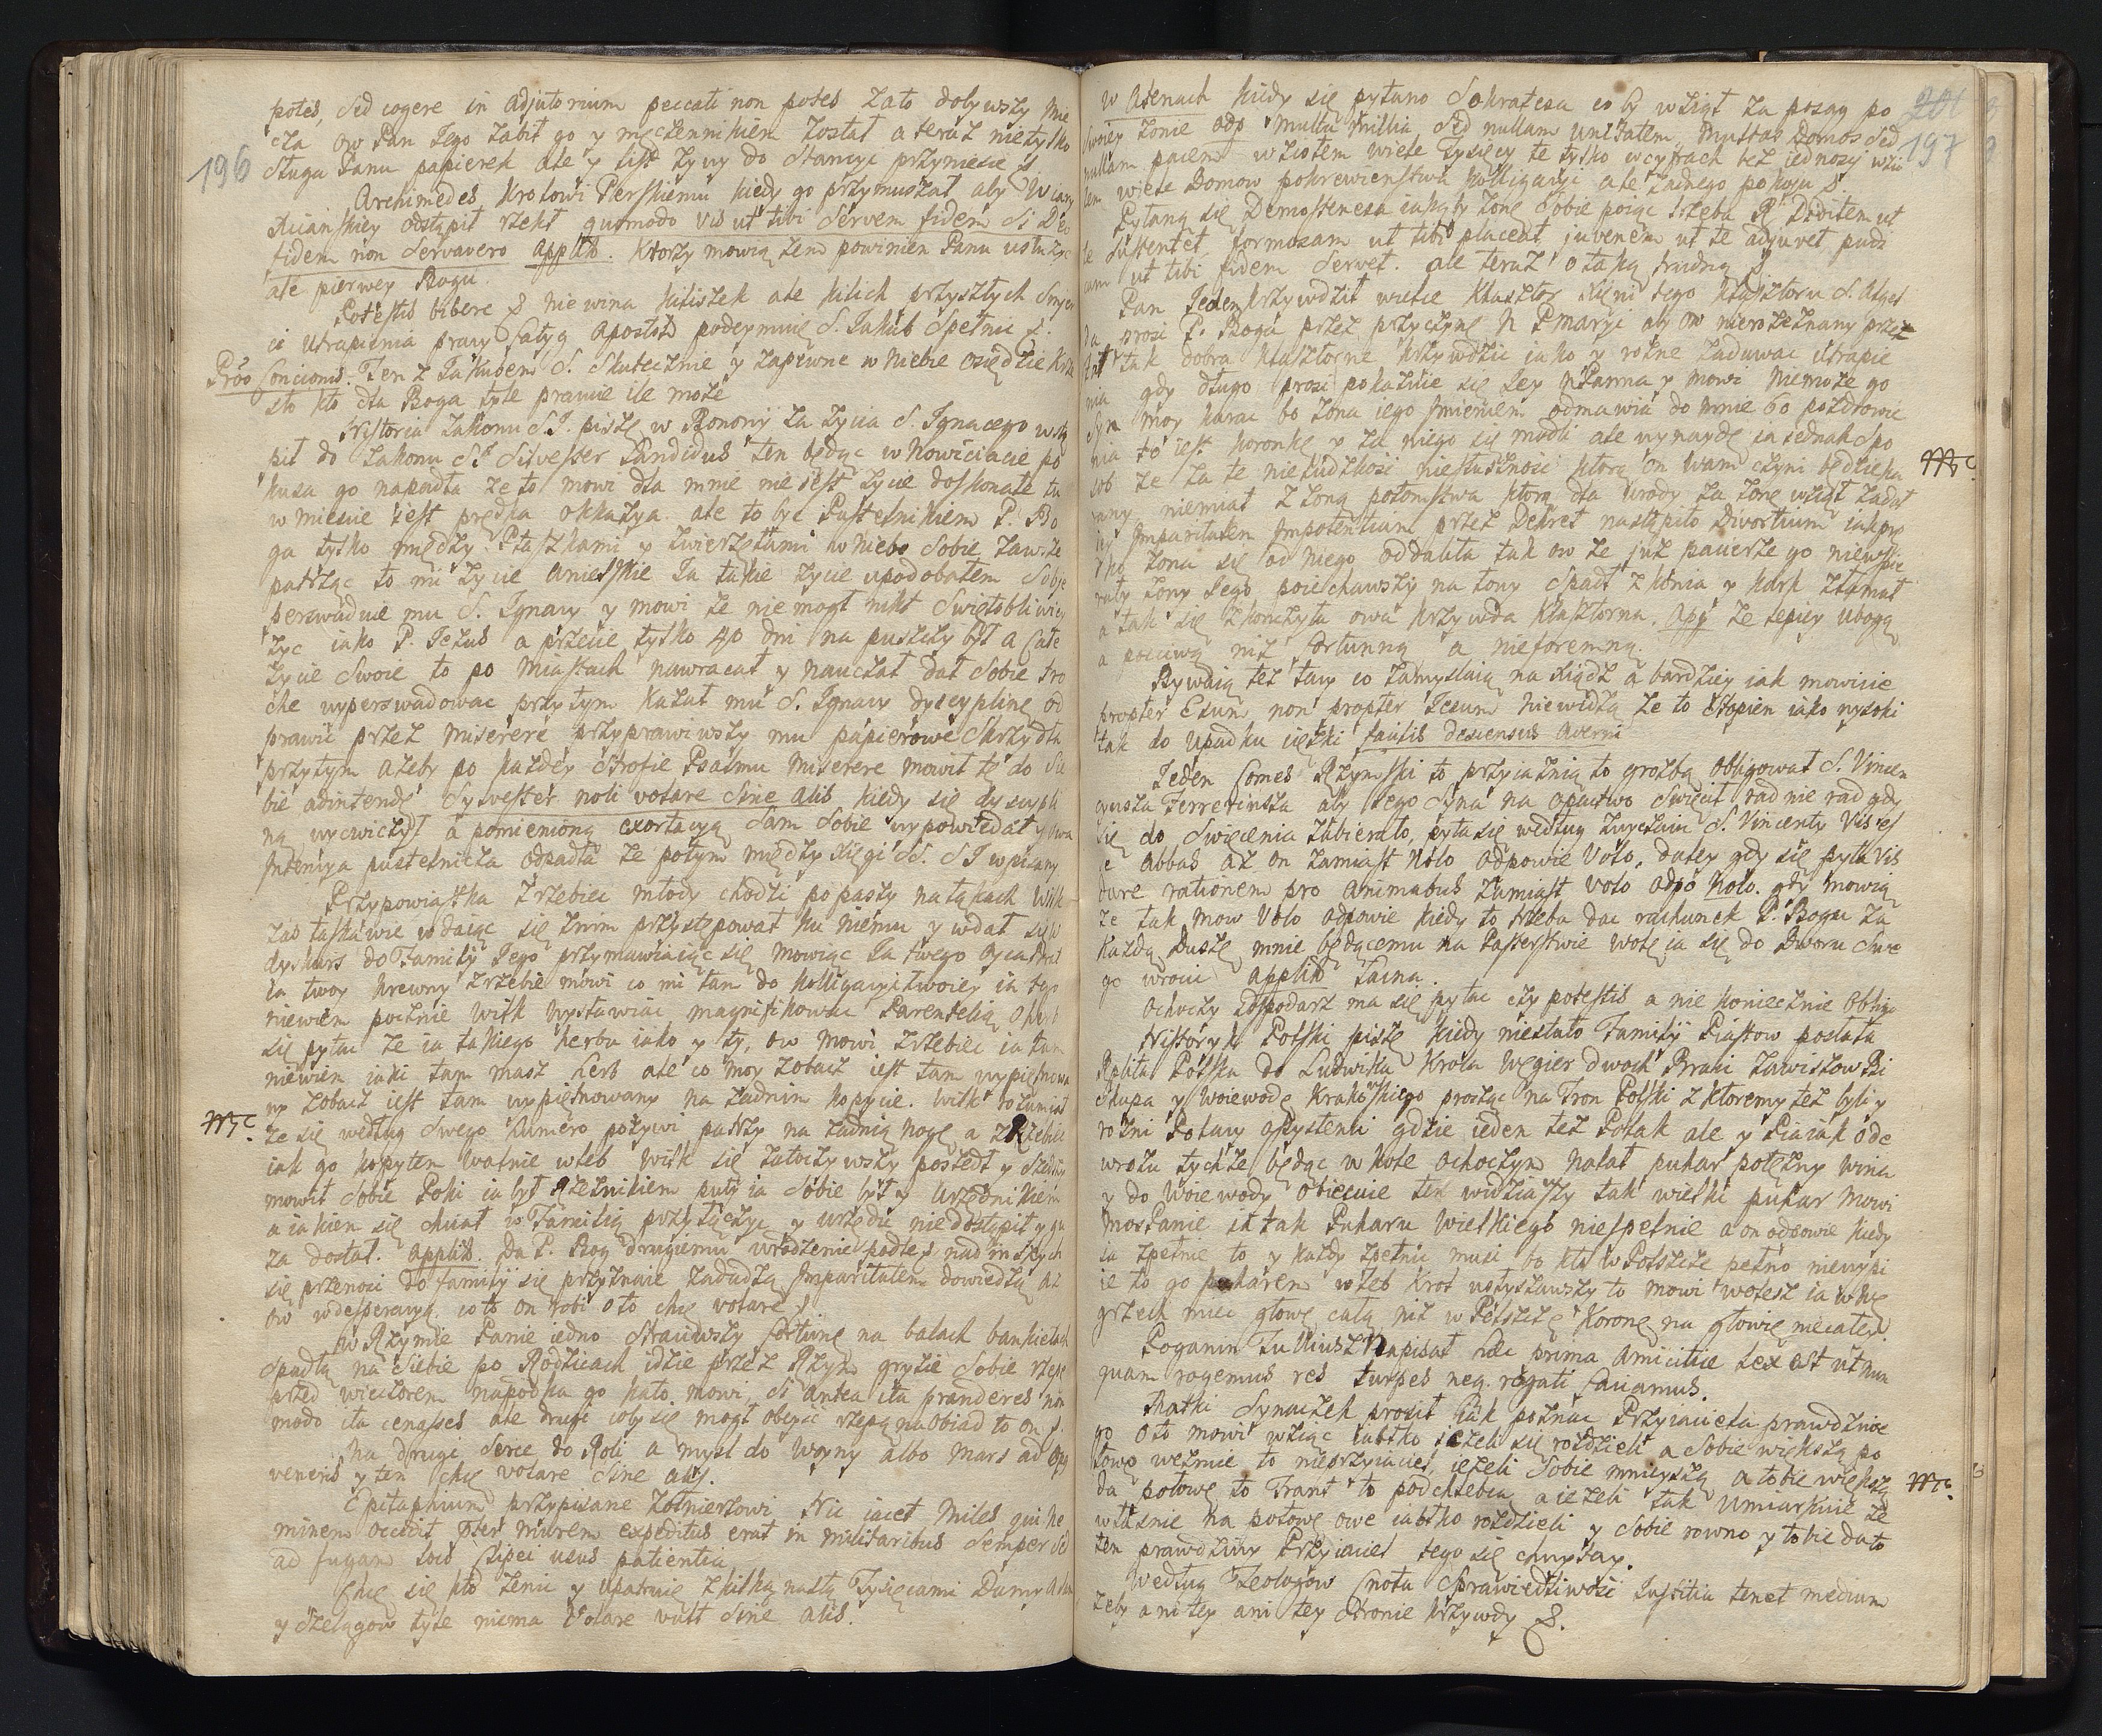 196
potes, sed cogere in adjutorium peccati non potes za to dobywszy mie
cza ow Pan Jego zabił go y męczennikiem został a teraz nietylko
sługa Panu papierek ale y list zyny do Stancyi przyniesie &.
Archimedes Krolowi Perskiemu kiedy go przymuszał aby Wiary
stąpił rzekł quomodo vis ut tibi servem fidem si Deo
fidem non servavero applik. Ktorzy mowią zem powinien Panu usłuzyc
ale pierwey Bogu.
Potestis bibere & nie wina kieliszek ale kielich przyszłych
ci utrapienia pracy fatyg Apostoł podeymuie S. Jakub spełnic &.
Pro Concionis. Ten z Jakubem S. skutecznie y zapewne w niebie osiędzie
sto kto dla Boga tyle pracuie ile moze
Historia Zakonu S.J. pisze w Bononij za zycia S. Ignacego wstą
pił do Zakonu SJ Silvester Landidus ten będąc w Nowiciacie po
kusa go napadła ze to mowi dla mnie nie iest zycie doskonałe tu
w miescie iest prędka okkazya ale to byc Pustelnikiem P. Bo
ga tylko między Ptaszkami y zwierzętami w niebo sobie zawsze
patrząc to mi zycie anielskie Ja takie zycie upodobałem sobie
perswaduie mu S. Ignacy y mowi ze nie mogł nikt swiętobliwiey
zyc iako P. Jezus a przecie tylko 40 dni na puszczy był a całe
zycie swoie to po miastach nawracał y nauczał dał sobie tro
che wyperswadowac przytym kazał mu S. Ignacy dyscyplinę od
prawic przez Miserere przyprawiwszy mu papierowe skrzydła
przytym azeby po kazdey strofie Psalmu Miserere mowił te do sie
bie adintende Sylvester noli volare sine alis kiedy się dyscypli
ną wycwiczył a pomienioną exortacyą sam sobie wypowiedał
Intencya pustelnicza odpadła ze potym między Xięgi SS. SJ wpisany
Przypowiastka zrzebiec młody chodzi po paszy na łąkach wilk
zas łaskawie wdaiąc się z nim przystępował ku niemu y wdał się w
dyskurs do Familij Jego przymawiaiąc się mowiąc Ja twego Oyca brat
ia twoy krewny zrzebie mowi co mi tam do kolligacyi twoiey ia tego
niewiem pocznie wilk wystawiac magnifikowac Parentelią
się pytac ze ia takiego herbu iako y ty, ow mowi zrzebiec ia tam
niewiem iaki tam masz herb ale co moy zobacz iest tam wypiętnowa
ny zobacz iest tam wypiętnowany na zadnim kopycie. Wilk rozumiał
NB.
ze się według swego humoro pozywi patrzy na zadnią nogę a zrzebiec
iak go kopytem walnie w łeb wilk się zatoczywszy poszedł y
mowił sobie Poki ia był rzeznikiem puty ia sobie był y Urzędnikiem
a iakiem się chciał w Familią przyłączyc y urzędu niedostąpił y gu
za dostał. Applik. Da P. Bog drugiemu urodzenie podłe nad inszych
się przenosi do familij się przyznaie zadadzą Imparitatem dowiedzą
ow w desperacyą co to on robi oto chce volare &.
W Rzymie Panie iedno strawiwszy fortunę na balach bankietach
spadłą na siebie po Rodzicach idzie przez Rzym gryzie sobie rzepę
przed wieczorem napotka go Kato mowi, Si antea ita pranderes non
modo ita cenasses ale drugi coby się mogł obeysc rzepą na obiad to on &.
Na drugi serce do Roli a mysl do Woyny albo Mars ad opus
veneris y ten chce volare sine alis.
Epitaphium przypisane zołnierzowi Hic iacet Miles qui he
minem occidit per murem expeditus erat in militaribus semper sed
ad fugam loco Clipei usus patientia
Chce się kto zenic y upatruie z kilką nastą Tysięcami Damy
y szelągow tyle niema Volare vult sine alis.
201
197
w Atenach kiedy się pytano Sokratesa co by wziął za posag po
swoiey zonie odp. Multa Millia, sed nullam unitatem, Multas Domos sed
nullam pacem wziołem wiele tysięcy te tylko w cyfrach bez iednosci wzio
łem wiele Domow pokrewienstwa Kolligacyi ale zadnego pokoju &.
Pytaną się Demostenesa iakąby zonę sobie poiąc trzeba Rx Divitem ut
te sustentet, formosam ut tibi placeat, juvenem ut te adjuvet pudi
cam ut tibi fidem servet. ale teraz o taką trudną &
Pan Jeden krzywdził wielce Klasztor Xięni tego klasztoru S. Alget
da prosi P. Boga przez przyczynę N P Maryi aby ow nierozeznany przez
tak dobra klasztorne krzywdzic iako y rozne zadawac utrapie
nia gdy długo prosi pokazuie się Jey N Panna y mowi niemoze go
Syn moy karac bo zona iego Imieniem odmawia do mnie 60 pozdrowie
nia to iest koronkę y za niego się modli ale wynaydę ia iednak spo
sob ze za te nieludzkosc niesłusznosc ktorą on wam czyni będzie ka
NB.
rany niemiał z zoną potomstwa ktorą dla urody za zonę wziął zadał
iey Imparitatem Impotentiam przez Dekret nastąpiło Divortium iakpre
tko zona się od niego oddaliła tak ow ze juz pacierze go niewspie
rały zony Jego poiechawszy na łowy spadł z konia y kark złamał
a tak się zkonczyła owa krzywda klasztorna. App. ze lepiey ubogą
a poczciwą niz fortunną a nieforemną.
Bywaią tez tacy co zamyslaią na Xiądz a bardziey iak mowicie
propter Esum non propter Jesum niewidzą ze to stopien iako wysoki
tak do upadku cięzki facilis descensus Averni
Jeden Comes Rzymski to przyiaznią to grozbą obligował S. Vincen
cyusza Ferreriusza aby iego syna na opactwo swięcił rad nie rad gdy
się do swięcenia zabierało, pyta się według zwyczaiu S. Vincenty Vis es
se Abbas az on zamiast Nolo odpowie Volo, daley gdy się pyta Vis
dare rationem pro animabus zamiast volo odpo Nolo. gdy mowią
ze tak mow Volo odpowie kiedy to trzeba dac rachunek P. Bogu za
kazdą Duszę mnie będącemu na Pasterstwie wolę ia się do Dworu swe
go wrocic applik Jasna.
Ochoczy Gospodarz ma się pytac czy potestis a nie koniecznie obliga
Historyk Polski pisze kiedy niestało Familij Piastow posłała
Rplita Polska do Ludwika Krola Węgier dwoch Braci Zawiszow Bi
skupa y Woiewodę Krakowskiego prosząc na Tron Polski z ktoremy tez byli y
rozni Polacy assystenci gdzie ieden tez Polak ale y Piiak ode
wrozu tychze będąc w kole ochoczym nalał puhar potęzny wina
y do Woiewody obiecuie ten widziawszy tak wielki puhar mowi
Mosci Panie ia tak Puharu Wielkiego niespełnie a on odpowie kiedy
ia spełnie to y kazdy spełnic musi bo kto w Polszcze pełno niewypi
ie to go puharem w łeb Krol usłyszawszy to mowi wolesz ia w Wę
grzech miec głowę całą niz w Polszcze Koronę na głowie niecałey.
Poganin Tulliusz napisał Hæc prima Amicitiæ lex est ut nun
quam rogemus res turpes neq. rogati faciamus.
Matki Synaczek prosił Jak poznac Przyiaciela prawdziwe
go Oto mowi wziąc iabłko iezeli się rozdzieli a sobie większą po
łowę wezmie to nieprzyiaciel, iezeli sobie mnieyszą a tobie większą
NB.
da połowę to Frant to podchlebca a iezeli tak umiarkuie ze
własnie na połowę owe iabłko rozdzieli y sobie rowno y tobie dało
ten prawdziwy Przyiaciel tego się chwytay.
Według Teologow Cnota Sprawiedliwosci Justitia tenet medium
zeby ani tey ani tey stronie krzywdy &.